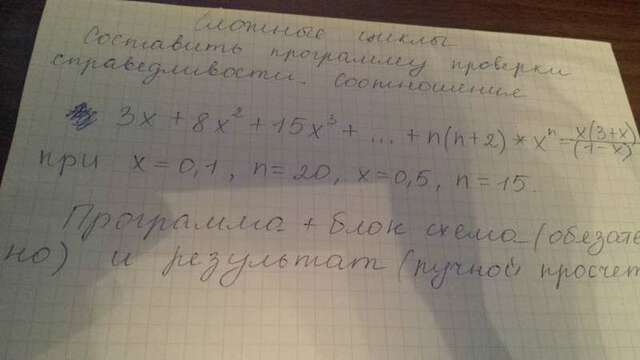 Сложные циклы
Составить программу проверки
справедливости соотношения
3x + 8x² + 15x³ + ... + n(n+2) * xⁿ = x(3+x)/(1-x)
при x = 0,1, n = 20, x = 0,5, n = 15.
Программа + блок схема (обязате
но) и результат (ручной просчет